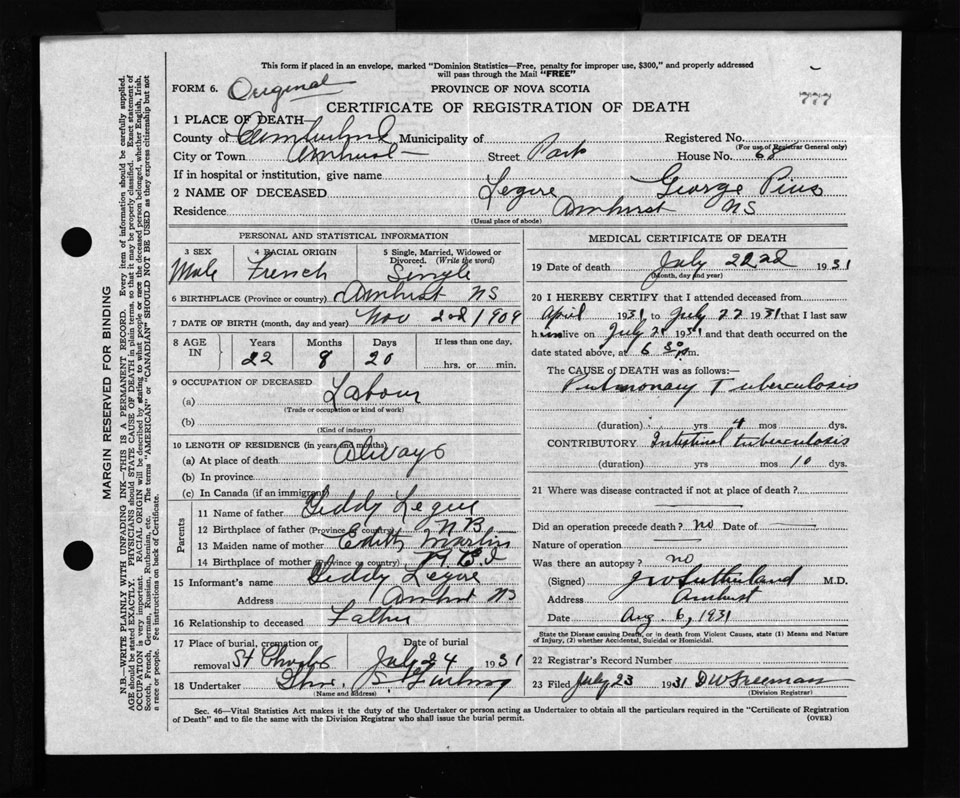 This form if placed in an envelope, marked "Dominion Statistics—Free, penalty for improper use, $300," and properly addressed
will pass through the Mail "FREE"
FORM 6. Original PROVINCE OF NOVA SCOTIA
777
CERTIFICATE OF REGISTRATION OF DEATH
1 PLACE OF DEATH—
County of Cumberland Municipality of Registered No.
(For use of Registrar General only)
City or Town Amherst Street Park House No. 68
If in hospital or institution, give name
2 NAME OF DECEASED Legere George Pius
Residence Amhurst NS
(Usual place of abode)
PERSONAL AND STATISTICAL INFORMATION
3 SEX 4 RACIAL ORIGIN 5 Single, Married, Widowed or
Divorced. (Write the word)
Male French Single
6 BIRTHPLACE (Province or country) Amhurst NS
7 DATE OF BIRTH (month, day and year) Nov 2nd 1909
8 AGE IN Years Months Days If less than one day,
22 8 20 hrs. or min.
9 OCCUPATION OF DECEASED
(a) Labour
(Trade or occupation or kind of work)
(b)
(Kind of industry)
10 LENGTH OF RESIDENCE (in years and months)
(a) At place of death Always
(b) In province
(c) In Canada (if an immigrant)
Parents
11 Name of father Giddy Legere
12 Birthplace of father (Province or country) N B
13 Maiden name of mother Edith Martin
14 Birthplace of mother (Province or country) P. E. I
15 Informant's name Giddy Legere
Address Amhurst NS
16 Relationship to deceased Father
17 Place of burial, cremation or removal St Charles Date of burial July 24 1931
18 Undertaker
(Name and address)
MEDICAL CERTIFICATE OF DEATH
19 Date of death July 22nd 1931
(Month, day and year)
20 I HEREBY CERTIFY that I attended deceased from
April 1931, to July 22 1931 that I last saw
him alive on July 21 1931 and that death occurred on
date stated above, at 6 30 p.m.
The CAUSE of DEATH was as follows:—
Pulmonary Tuberculosis
(duration) yrs 4 mos dys.
CONTRIBUTORY Intestinal tuberculosis
(duration) yrs mos 10 dys.
21 Where was disease contracted if not at place of death?
Did an operation precede death? no Date of
Nature of operation
Was there an autopsy? no
(Signed) J W Sutherland M.D.
Address Amherst
Date Aug. 6, 1931
State the Disease causing Death, or in death from Violent Causes, state (1) Means and Nature
of Injury, (2) whether Accidental, Suicidal or Homicidal.
22 Registrar's Record Number
23 Filed July 23 1931 D W Freeman
(Division Registrar)
Sec. 46—Vital Statistics Act makes it the duty of the Undertaker or person acting as Undertaker to obtain all the particulars required in the "Certificate of Registration
of Death" and to file the same with the Division Registrar who shall issue the burial permit. (OVER)
MARGIN RESERVED FOR BINDING
N.B.—WRITE PLAINLY WITH UNFADING INK—THIS IS A PERMANENT RECORD. Every item of information should be carefully supplied.
AGE should be stated EXACTLY. PHYSICIANS should STATE CAUSE OF DEATH in plain terms, so that it may be properly classified. Exact statement of
OCCUPATION is very important. RACIAL ORIGIN will be described by stating to what people or race the deceased person belonged, whether English, Irish,
Scotch, French, German, Russian, Ruthenian, etc. The terms "AMERICAN" or "CANADIAN" SHOULD NOT BE USED as they express citizenship but not
a race or people. Fee instructions on back of Certificate.